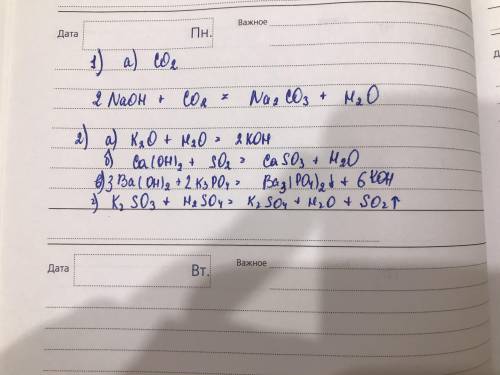 Дата Пн. Важное
1) а) CO2
2 NaOH + CO2 = Na2CO3 + H2O
2) а) K2O + H2O = 2KOH
б) Ca(OH)2 + SO2 = CaSO3 + H2O
в) 3Ba(OH)2 + 2K3PO4 = Ba3(PO4)2↓ + 6KOH
г) K2SO3 + H2SO4 = K2SO4 + H2O + SO2↑
Дата Вт. Важное